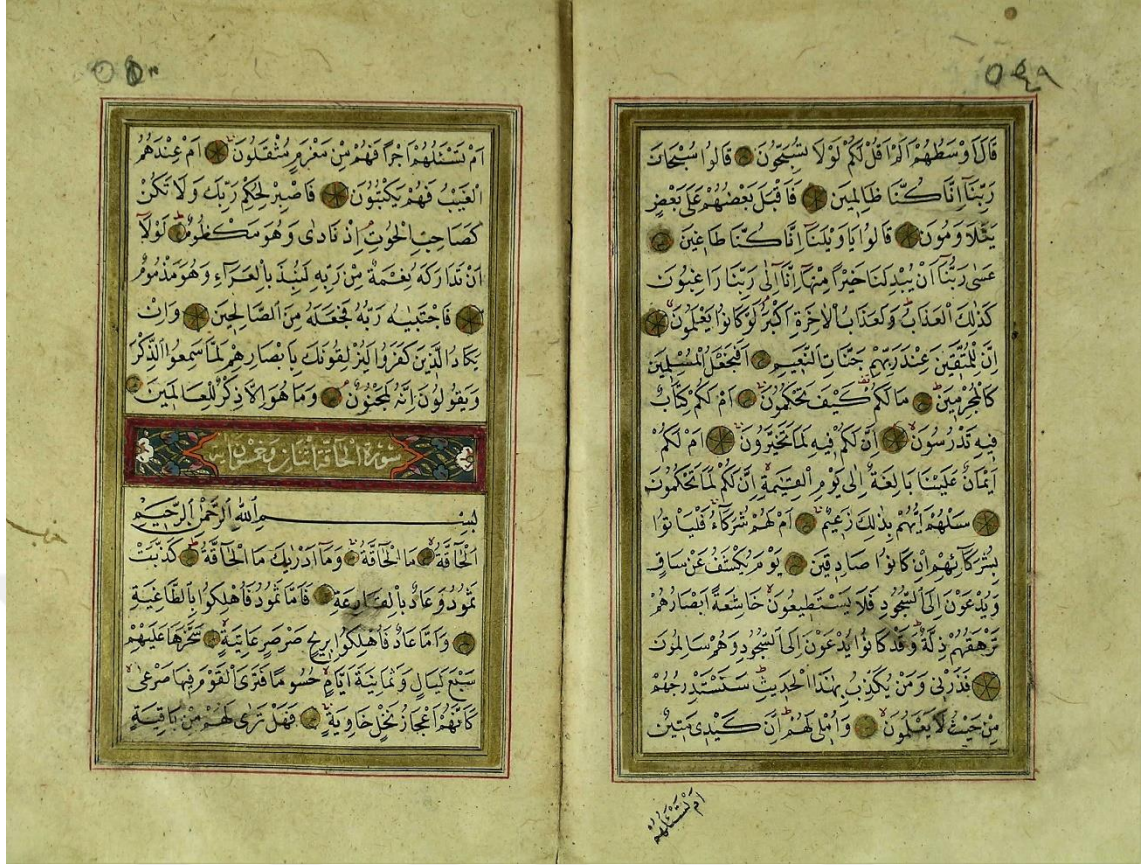 ٥٤٩
قَالَ اَوْسَطُهُمْ اَلَمْ اَقُلْ لَكُمْ لَوْلَا تُسَبِّحُونَ قَالُوا سُبْحَانَ
رَبِّنَٓا اِنَّا كُنَّا ظَالِمِينَ فَاَقْبَلَ بَعْضُهُمْ عَلٰى بَعْضٍ
يَتَلَاوَمُونَ قَالُوا يَا وَيْلَنَٓا اِنَّا كُنَّا طَاغِينَ
عَسٰى رَبُّنَٓا اَنْ يُبْدِلَنَا خَيْرًا مِنْهَٓا اِنَّٓا اِلٰى رَبِّنَا رَاغِبُونَ
كَذٰلِكَ الْعَذَابُ وَلَعَذَابُ الْاٰخِرَةِ اَكْبَرُ لَوْ كَانُوا يَعْلَمُونَ
اِنَّ لِلْمُتَّقِينَ عِنْدَ رَبِّهِمْ جَنَّاتِ النَّعِيمِ اَفَنَجْعَلُ الْمُسْلِمِينَ
كَالْمُجْرِمِينَ مَا لَكُمْ كَيْفَ تَحْكُمُونَ اَمْ لَكُمْ كِتَابٌ
فِيهِ تَدْرُسُونَ اِنَّ لَكُمْ فِيهِ لَمَا تَخَيَّرُونَ اَمْ لَكُمْ
اَيْمَانٌ عَلَيْنَا بَالِغَةٌ اِلٰى يَوْمِ الْقِيٰمَةِ اِنَّ لَكُمْ لَمَا تَحْكُمُونَ
سَلْهُمْ اَيُّهُمْ بِذٰلِكَ زَعِيمٌ اَمْ لَهُمْ شُرَكَٓاءُ فَلْيَأْتُوا
بِشُرَكَٓائِهِمْ اِنْ كَانُوا صَادِقِينَ يَوْمَ يُكْشَفُ عَنْ سَاقٍ
وَيُدْعَوْنَ اِلَى السُّجُودِ فَلَا يَسْتَطِيعُونَ خَاشِعَةً اَبْصَارُهُمْ
تَرْهَقُهُمْ ذِلَّةٌ وَقَدْ كَانُوا يُدْعَوْنَ اِلَى السُّجُودِ وَهُمْ سَالِمُونَ
فَذَرْنِى وَمَنْ يُكَذِّبُ بِهٰذَا الْحَدِيثِ سَنَسْتَدْرِجُهُمْ
مِنْ حَيْثُ لَا يَعْلَمُونَ وَاُمْلِى لَهُمْ اِنَّ كَيْدِى مَتِينٌ
اَمْ تَسْئَلُهُمْ
اَمْ تَسْئَلُهُمْ اَجْرًا فَهُمْ مِنْ مَغْرَمٍ مُثْقَلُونَ اَمْ عِنْدَهُمُ
الْغَيْبُ فَهُمْ يَكْتُبُونَ فَاصْبِرْ لِحُكْمِ رَبِّكَ وَلَا تَكُنْ
كَصَاحِبِ الْحُوتِ اِذْ نَادٰى وَهُوَ مَكْظُومٌ لَوْلَٓا
اَنْ تَدَارَكَهُ نِعْمَةٌ مِنْ رَبِّهِ لَنُبِذَ بِالْعَرَٓاءِ وَهُوَ مَذْمُومٌ
فَاجْتَبٰيهُ رَبُّهُ فَجَعَلَهُ مِنَ الصَّالِحِينَ وَاِنْ
يَكَادُ الَّذِينَ كَفَرُوا لَيُزْلِقُونَكَ بِاَبْصَارِهِمْ لَمَّا سَمِعُوا الذِّكْرَ
وَيَقُولُونَ اِنَّهُ لَمَجْنُونٌ وَمَا هُوَ اِلَّا ذِكْرٌ لِلْعَالَمِينَ
سورة الحاقة اثنان وخمسون اية
بِسْمِ اللّٰهِ الرَّحْمٰنِ الرَّحِيمِ
اَلْحَٓاقَّةُ مَا الْحَٓاقَّةُ وَمَٓا اَدْرٰيكَ مَا الْحَٓاقَّةُ كَذَّبَتْ
ثَمُودُ وَعَادٌ بِالْقَارِعَةِ فَاَمَّا ثَمُودُ فَاُهْلِكُوا بِالطَّاغِيَةِ
وَاَمَّا عَادٌ فَاُهْلِكُوا بِرِيحٍ صَرْصَرٍ عَاتِيَةٍ سَخَّرَهَا عَلَيْهِمْ
سَبْعَ لَيَالٍ وَثَمَانِيَةَ اَيَّامٍ حُسُومًا فَتَرَى الْقَوْمَ فِيهَا صَرْعٰى
كَاَنَّهُمْ اَعْجَازُ نَخْلٍ خَاوِيَةٍ فَهَلْ تَرٰى لَهُمْ مِنْ بَاقِيَةٍ